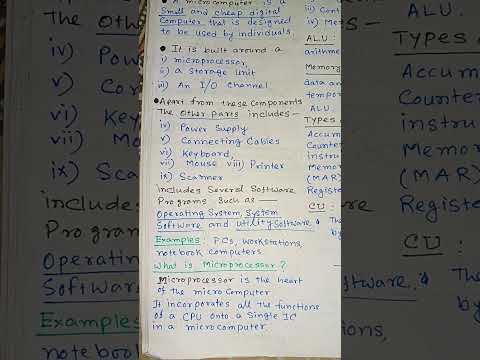 A microcomputer is a
Small and cheap digital
Computer that is designed
to be used by individuals
• It is built around a
i) microprocessor,
ii) a storage unit
iii) An I/O channel
• Apart from these components
The Other Parts includes-
iv) Power Supply
v) Connecting Cables
vi) Keyboard,
vii) Mouse viii) Printer
ix) Scanner
Includes Several Software
Programs such as —
Operating System, System
Software and utility software.
Examples: PCs, workstations,
notebook computers
What is Microprocessor?
Microprocessor is the heart
of the micro computer
It incorporates all the functions
of a CPU onto a Single IC
in a microcomputer.
ALU:
arithme
Memory
data an
tempor
ALU.
Types
Accum
Counte
instru
Memor
(MAR)
Registe
CU:
The
by